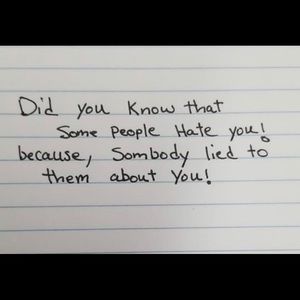 Did you Know that
Some People Hate you!
because, Sombody lied to
them about You!